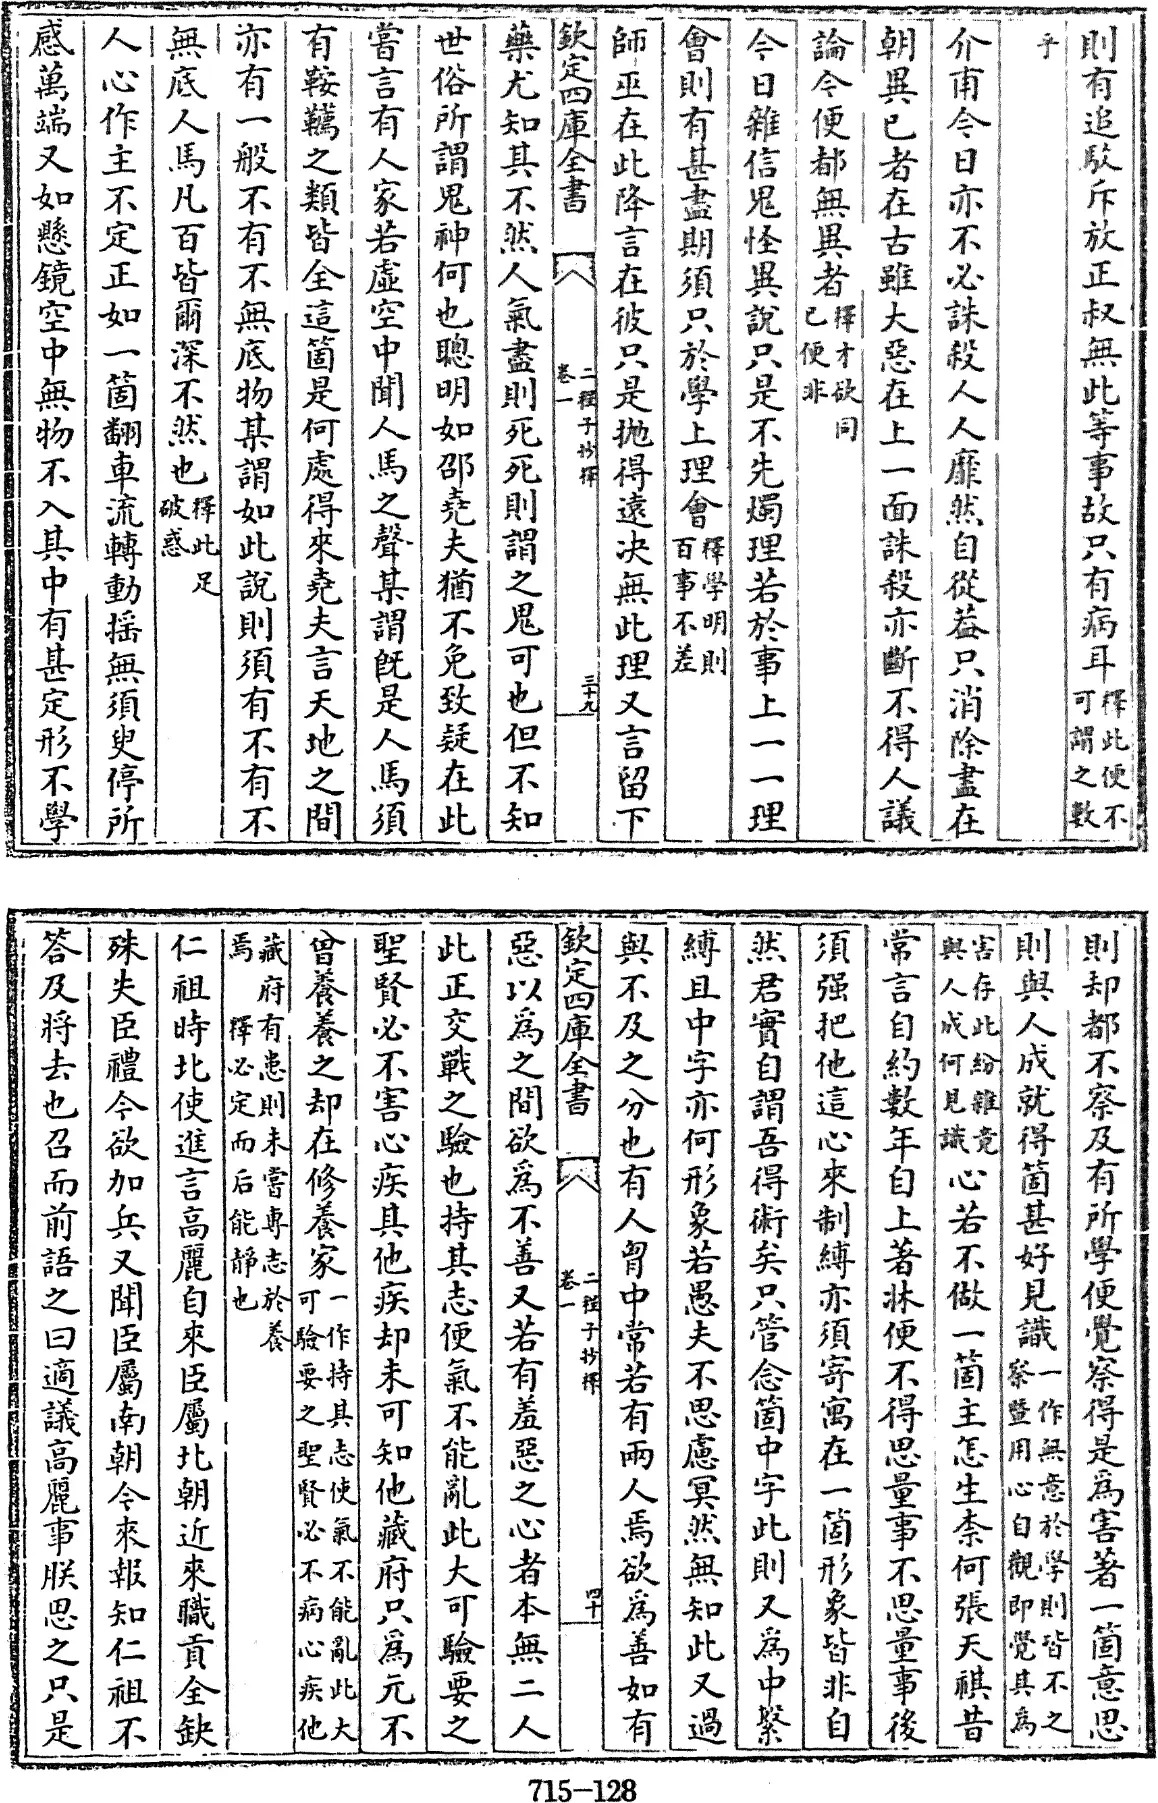 則有追駁斥放正叔無此等事故只有病耳釋此便不可謂之數
乎
介甫今日亦不必誅殺人人靡然自從葢只消除盡在
朝異已者在古雖大惡在上一面誅殺亦斷不得人議
論今便都無異者釋才欲同已便非
今日雜信鬼怪異說只是不先燭理若於事上一一理
會則有甚盡期須只於學上理會釋學明則百事不差
師巫在此降言在彼只是拋得遠决無此理又言留下
欽定四庫全書
二程子抄釋
卷一
三十九
藥尤知其不然人氣盡則死死則謂之鬼可也但不知
世俗所謂鬼神何也聰明如邵堯夫猶不免致疑在此
嘗言有人家若虛空中聞人馬之聲某謂既是人馬須
有鞍韉之類皆全這箇是何處得來堯夫言天地之間
亦有一般不有不無底物某謂如此說則須有不有不
無底人馬凡百皆爾深不然也釋此足破惑
人心作主不定正如一箇翻車流轉動搖無須臾停所
感萬端又如懸鏡空中無物不入其中有甚定形不學
則却都不察及有所學便覺察得是為害著一箇意思
則與人成就得箇甚好見識一作無意於學則皆不之察暨用心自觀即覺其為
害存此紛雜竟與人成何見識心若不做一箇主怎生柰何張天祺昔
常言自約數年自上著牀便不得思量事不思量事後
須强把他這心來制縛亦須寄寓在一箇形象皆非自
然君實自謂吾得術矣只管念箇中字此則又為中繫
縛且中字亦何形象若愚夫不思慮冥然無知此又過
與不及之分也有人胷中常若有兩人焉欲為善如有
欽定四庫全書
二程子抄釋
卷一
四十
惡以為之間欲為不善又若有羞惡之心者本無二人
此正交戰之驗也持其志便氣不能亂此大可驗要之
聖賢必不害心疾其他疾却未可知他藏府只為元不
曾養養之却在修養家一作持其志使氣不能亂此大可驗要之聖賢必不病心疾他
藏府有患則未嘗專志於養焉 釋必定而后能靜也
仁祖時北使進言高麗自來臣屬北朝近來職貢全缺
殊失臣禮今欲加兵又聞臣屬南朝今來報知仁祖不
答及將去也召而前語之曰適議高麗事朕思之只是
715-128